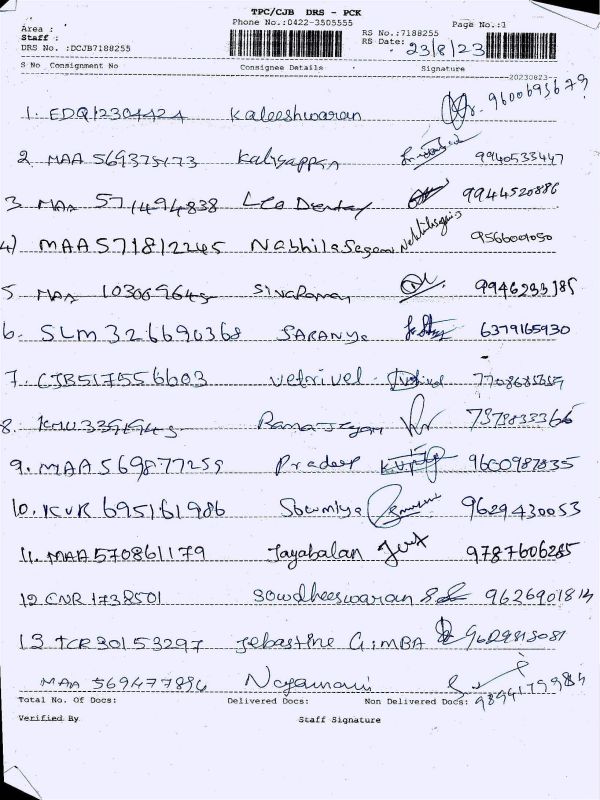 TPC/CJB DRS - PCK
Phone No.:0422-3505555 Page No.:1
Area :
Staff : RS No.:7188255
DRS No. :DCJB7188255 RS Date: 23/8/23
S No Consignment No Consignee Details Signature
20230823
1. EDQ12304424 Kaleeshwaran 9600695679
2. MAA 569375173 Kaliyappan 9940533447
3 MAA 571494838 Leo Dental 9944520886
4) MAA571812245 Nabhila Segani
5 MAA 103069645 Sivaraman 9946233185
6. SLM 326690368 SARANYA 6379165930
7. CJB517556603 Vetrivel
8. Ramajeyam 7373833366
9. MAA 569877259 Pradeep 9600987835
10. KVR 695161986 Sowmiya 9629430053
11. MAA570861179 Jayabalan 9787606285
12 CNR 1738501 Sowdheeswaran 9626901814
13 TCR30153297 Jebastine G:MBA
MAA 569477896 Nagamani
Total No. Of Docs: Delivered Docs: Non Delivered Docs:
Verified By Staff Signature